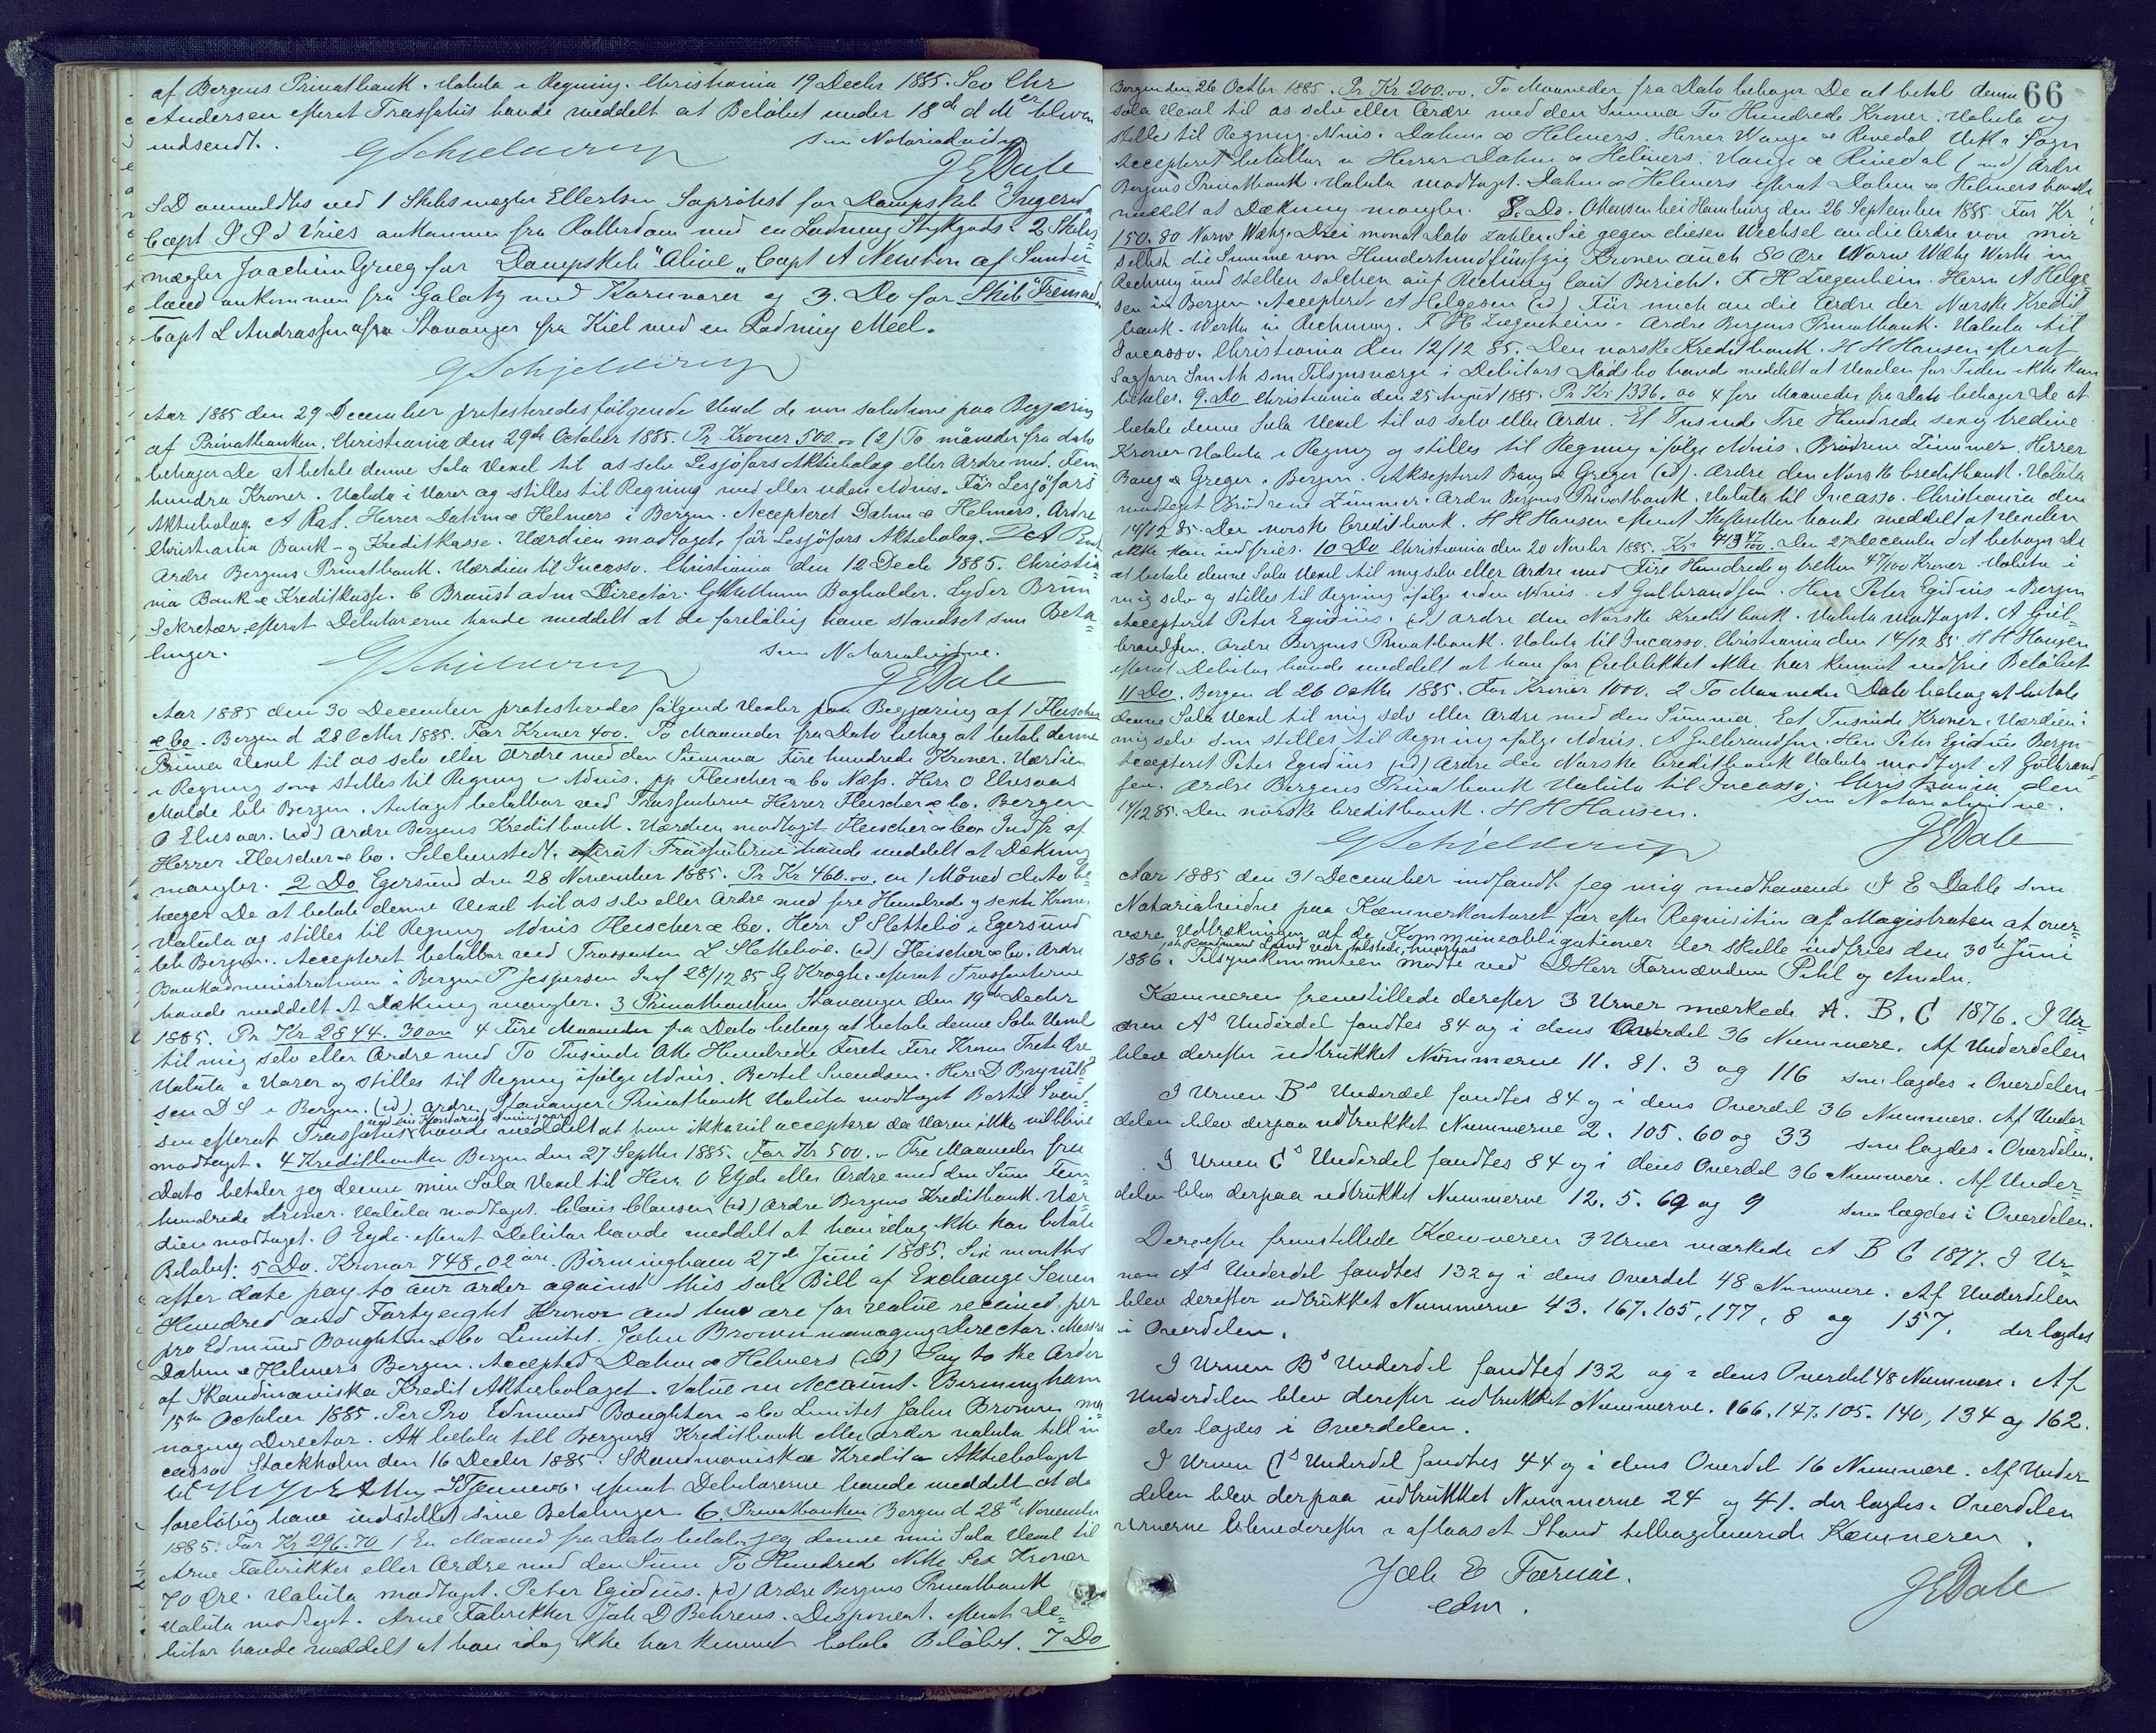 af Bergens Privatbank. Valuta i Regning. Christiania 19 Decbr 1885. Sev Chr
Andersen efterat Trassatus havde meddelt at Beløbet under 18de d M er bleven
indsendt.
GSchjelderup som Notarialvidne
JEDale
SD anmeldtes ved 1 Skibsmægler Ellertsen Søprotest for Dampskib Ingerid
Capt P P d Vries ankommen fra Rotterdam med en Ladning Stykgods. 2 Skibs=
mægler Joachim Grieg for Dampskib "Alive" Capt A Newton af Sunder=
land ankommen fra Galatz med Kornvarer og 3. Do for Skib "Fremad"
Capt L Andrassen afra Stavanger fra Kiel med en Ladning Meel.
GSchjelderup
Aar 1885 den 29 December protesteredes følgende Vexel de non solutione paa Begjæring
af Privatbanken. Christiania den 29de October 1885. Pr Kroner 500.00 (2) To måneder fra dato
behager De at betale denne Sola Vexel til os selv Lesjöfors Aktiebolag eller Ordre med. Fem
hundra Kroner. Valuta i Varer og stilles til Regning med eller uden Advis. För Lesjöfors
Aktiebolag A Ros. Herrer Dahm & Helmers i Bergen. Accepteret Dahm & Helmers. Ordre
Christiania Bank- og Kreditkasse. Værdien modtaget. för Lesjöfors Aktiebolag.
Ordre Bergens Privatbank. Værdien til Incasso. Christiania den 12 Decb. 1885. Christia=
nia Bank & Kreditkasse. C Braust adm Director. Bogholder. Lyder Brun
Sekretær. efterat Debitorerne havde meddelt at de foreløbig have standset sine Beta=
linger.
GSchjelderup som Notarialvidne.
JEDale
Aar 1885 den 30 December protesteredes følgende Vexler paa Begjæring af 1 Fleischer
& Co. Bergen d 28 Octbr 1885. For Kroner 400. To Maaneder fra Dato behag at betale denne
Prima Vexel til os selv eller Ordre med den Summa Fire hundrede Kroner. Værdien
i Regning som stilles til Regning i Advis. pp Fleischer & Co Næss. Herr O Elvsaas
Molde bet. Bergen. Antaget betalbar ved Trassenterne Herrer Fleischer & Co. Bergen
O Elvsaas. (ud) Ordre Bergens Kreditbank. Værdien modtaget Fleischer & Co. Indfr af
Herrer Fleischer & Co. efterat Trassenterne havde meddelt at Dækning
mangler. 2 Do Egersund den 28 November 1885. Pr Kr 460.00. en 1 Måned dato be=
hager De at betale denne Vexel til os selv eller Ordre med fire Hundrede og sexti Kroner
Valuta og stilles til Regning Advis Fleischer & Co. Herr S Slettebö i Egersund
bet. Bergen. Accepteret betalbar ved Trassenten L Slettebøe. (ud) Fleischer & Co. Ordre
Bankadministrationen i Bergen P Jespersen Inf 28/12 85 G Krogh. efterat Trassenterne
havde meddelt at Dækning mangler. 3 Privatbanken Stavanger den 19de Decbr
1885. Pr Kr 2844.30 øre 4 Fire Maaneder fra Dato behag at betale denne Sola Vexel
til mig selv eller Ordre med To Tusinde Otte Hundrede Firti Fire Kroner Treti Øre
Valuta i Varer og stilles til Regning ifølge Advis. Bertel Svendsen. Herr D Brynild=
sen D S i Bergen. (ud) Ordre Stavanger Privatbank Valuta modtaget Bertel Svend=
sen efterat Trassatus havde meddelt at han ikke vil acceptere da Varen ikke vil blive
modtaget. 4 Kreditbanken Bergen den 27 Septbr 1885. For Kr 500.- Tre Maaneder fra
Dato betaler jeg denne min Sola Vexel til Herr O Egde eller Ordre med den Sum fem=
hundrede Kroner. Valuta modtaget. Claus Clausen (ud) Ordre Bergens Kreditbank. Vær=
dien modtaget. O Egde. efterat Debitor havde meddelt at han idag ikke kan betale
Beløbet: 5 Do. Kronor 748,02 öre. Birmingham 27th Juni 1885. Six months
after date pay to our order against this sole Bill of Exchange Seven
Hundred and Fortyeight Kronor and two öre for value received per
pro Edmund Boughton & Co Limited. John Brown managing Director. Messrs
Dahm & Helmers Bergen. Accepted Dahm & Helmers (ud) Pay to the Order
af Skandinaviska Kredit Aktiebolaget. Value in Account. Birmingham
15th October 1885. Per Pro Edmund Boughton & Co Limited John Brown ma=
naging Director. Att betala till Bergens Kreditbank eller order valuta till in
casso Stockholm den 16 Decbr 1885. Skandinaviska Kredit Aktiebolaget
efterat Debitorerne havde meddelt at de
foreløbig have indstillet sine Betalinger 6. Privatbanken Bergen d 28de November
1885. For Kr 296.70 1 En Maaned fra Dato betaler jeg denne min Sola Vexel til
Arne Fabrikker eller Ordre med den Sum To Hundrede Nitti Sex Kroner
70 Øre. Valuta modtaget. Peter Egidius. (ud) Ordre Bergens Privatbank
Valuta modtaget. Arne Fabrikker Joh D Behrens. Disponent. efterat De=
bitor havde meddelt at han idag ikke har kunnet betale Beløbet. 7 Do
66
Bergen den 26 Octbr 1885. Pr Kr 200.00. To Maaneder fra Dato behager De at betale denne
Sola Vexel til os selv eller Ordre med den Summa To Hundrede Kroner. Valuta og
stilles til Regning Advis. Dahm & Helmers. Herrer Vange & Rivedal Vik i Sogn
Accepteret betalbar i Herrer Dahm & Helmers. Vange & Rivedal (ud) Ordre
Bergens Privatbank. Valuta modtaget. Dahm & Helmers efterat Dahm & Helmers havde
meddelt at Dækning mangler. 8. Do. Ottensen bei Hamburg den 26 September 1885 For Kr
150.80 Norw Währg. Drei monat Dato Zahlen Sie gegen diesen Wechsel an die Ordre von mir
selbst die Summe von Hundertundfünfzig Kronen auch 80 Øre Norw Währg Werth in
Rechnung und stellen solchen auf Rechnung laut Bericht. F H Ziegenhein. Herrn A Helge=
sen in Bergen. Accepteret A Helgesen (ud) Für mich an die Ordre der Norske Kredit
bank. Werth in Rechnung. F H Ziegenhein. Ordre Bergens Privatbank. Valuta til
Incasso. Christiania den 12/12 85. Den norske Kreditbank. H H Hansen efterat
Sagfører Smith som Tilsynsværge i Debitors Dødsbo havde meddelt at Vexelen for Tiden ikke kan
betales. 9. Do Christiania den 25 August 1885. Pr Kr. 1336.00 4 fire Maaneder fra Dato behager De at
betale denne Sola Vexel til os selv eller Ordre. Et Tusinde Tre Hundrede sex og tredive
Kroner Valuta i Regning og stilles til Regning ifølge Advis. Brødrene Zimmer. Herrer
Baug & Greger. Bergen. Akcepteret Baug & Greger (ud). Ordre den Norske Creditbank. Valuta
modtaget Brødrene Zimmer. Ordre Bergens Privatbank. Valuta til Incasso. Christiania den
14/12 85. Den norske Creditbank. H H Hansen efterat Skifteretten havde meddelt at Vexelen
ikke kan indfries. 10 Do Christiania den 20 Novebr 1885. Kr 413 47/100. Den 27 December d A behager De
at betale denne Sola Vexel til mig selv eller Ordre med Fire Hundrede og tretten 47/100 Kroner. Valuta i
mig selv og stilles til Regning ifølge uden Advis. A Gulbrandsen. Herr Peter Egidius i Bergen
Accepteret Peter Egidius. (ud) Ordre den Norske Kreditbank. Valuta modtaget. A Gul=
brandsen. Ordre Bergens Privatbank. Valuta til Incasso. Christiania den 14/12 85. H H Hansen
efterat Debitor havde meddelt at han for Øieblikket ikke har kunnet indfrie Beløbet
11 Do. Bergen d 26 Octbr 1885. For Kroner 1000. 2 To Maaneder Dato behag at betale
denne Sola Vexel til mig selv eller Ordre med den Summa, Eet Tusinde Kroner. Værdien i
mig selv som stilles til Regning ifølge Advis. A Gulbrandsen. Herr Peter Egidius Bergen
Accepteret Peter Egidius (ud) Ordre den Norske Creditbank Valuta modtaget A Gulbrand=
sen. Ordre Bergens Privatbank Valuta til Incasso. Christiania den
14/12 85. Den norske Creditbank. H H Hansen. som Notarialvidne.
GSchjelderup JEDale
Aar 1885 den 31 December indfandt jeg mig medhavende J E Dahle som
Notarialvidne paa Kæmnerkontoret for efter Requisition af Magistraten at over=
være Udtrækningen af de Kommuneobligationer der skulle indfries den 30te Juni
1886. Tilsynskommiteen mødte ved DHerr Formændene Pihl og Amdn.
Kæmneren fremstillede derefter 3 Urner mærkede A. B. C 1876. I Ur=
nen As Underdel fandtes 84 og i dens Overdel 36 Nummere. Af Underdelen
blev derefter udtrukket Nummerne 11. 81. 3 og 116 som lagdes i Overdelen
I Urnen Bs Underdel fandtes 84 og i dens Overdel 36 Nummere. Af Under=
delen blev derpaa udtrukket Nummerne 2. 105. 60 og 33 som lagdes i Overdelen.
I Urnen Cs Underdel fandtes 84 og i dens Overdel 36 Nummere. Af Under=
delen blev derpaa udtrukket Nummerne 12. 5. 69 og 9 som lagdes i Overdelen.
Derefter fremstillede Kæmneren 3 Urner mærkede A B C 1877. I Ur=
nen As Underdel fandtes 132 og i dens Overdel 48 Nummere. Af Underdelen
blev derefter udtrukket Nummerne 43. 167. 105, 177, 8 og 157. der lagdes
i Overdelen.
I Urnen Bs Underdel fandtes 132 og i dens Overdel 48 Nummere. Af
Underdelen blev derefter udtrukket Nummerne. 166. 147. 105. 140, 134 og 162.
der lagdes i Overdelen.
I Urnen Cs Underdel fandtes 44 og i dens Overdel 16 Nummere. Af Under
delen blev derpaa udtrukket Nummerne 24 og 41. der lagdes i Overdelen
Urnerne bleve derefter i aflaaset Stand tilbageleverede Kæmneren.
JEDale